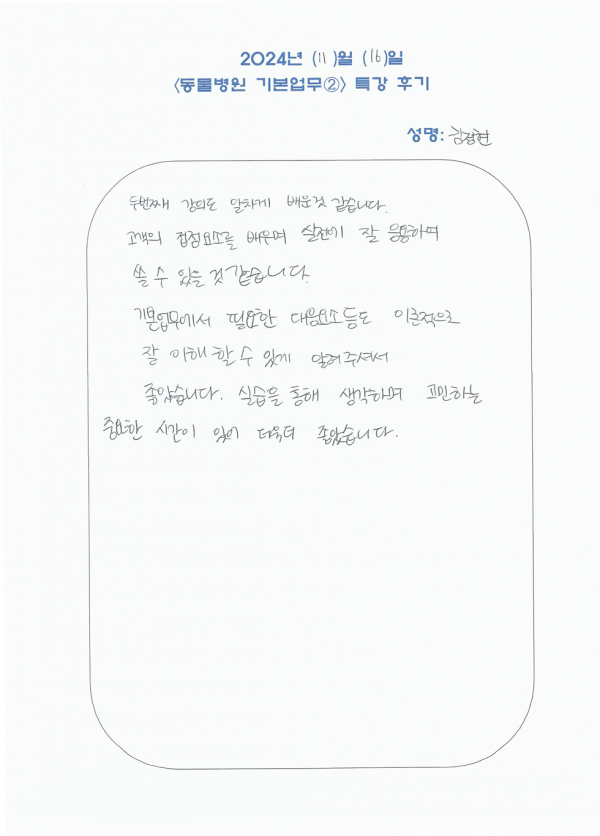 2024년 (11)월 (16)일
<동물병원 기본업무②> 특강 후기
성명: 김정현
두번째 강의도 알차게 배운것 같습니다.
고객의 접점요소를 배우며 실전에 잘 응용하며
쓸 수 있는 것 같습니다.
기본업무에서 필요한 대응요소 등도 이론적으로
잘 이해 할 수 있게 알려주셔서
좋았습니다. 실습을 통해 생각하며 고민하는
중요한 시간이 있어 더욱더 좋았습니다.